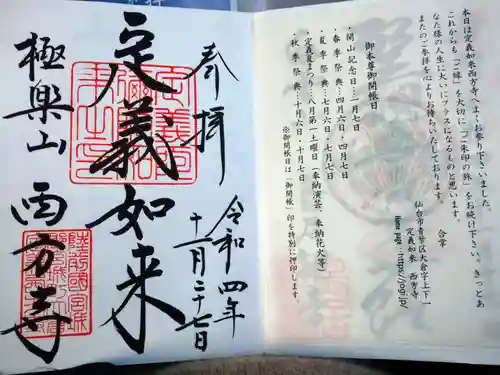 本日は定義如来西方寺へよくお参り下さいました。
これからも「ご縁」を大切に「ご朱印の旅」をお続け下さい。きっとあ
なた様の人生に大いにプラスになるものと思います。
またのご参拝を心よりお待ちいたしております。
合掌
仙台市青葉区大倉字上下一
定義如来 西方寺
Home page https://jogi.jp/
御本尊御開帳日
・開山記念日…一月七日
・春季祭典…四月六日・四月七日
・夏季祭典…七月六日・七月七日
・定義夏まつり…八月第一土曜日(奉納演芸、奉納花火等)
・秋季祭典…十月六日・十月七日
※御開帳日は「御開帳」印を特別に押印します。
奉拝
令和四年
十一月二十七日
定義如来
極楽山 西方寺